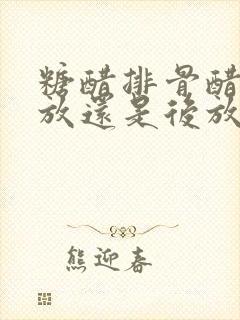 糖醋排骨醋
放還是後放
熊迎春